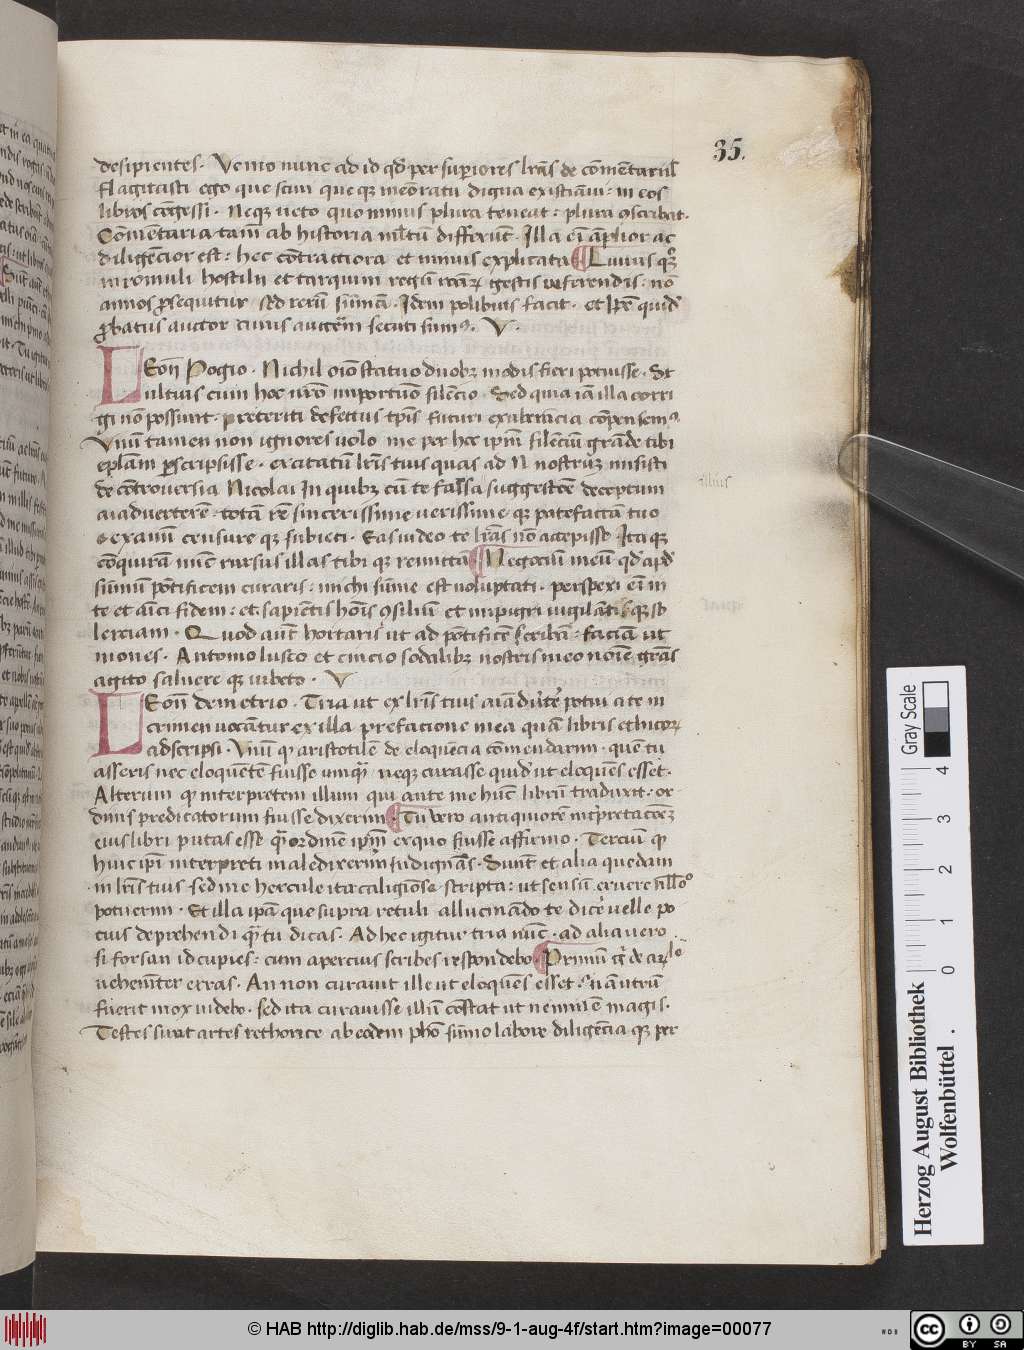 35.
desipientes. Venio nunc ad id qđ per superiores lr̄as de cōmētariis
flagitasti ego que scīui que qꝫ meōratu digna existīaui: in eos
libros cōgessi. Neqꝫ ueto quo minus plura teneat: plura ꝯscribat.
Cōmentaria tam̄ ab historia ml̄tū differūt. Illa eī āplior ac
diligēcior est: hec cōtractiora et minus explicata Liuius
in romuli hostilii et tarquini regū gestis referendis. nō
annos ꝓsequitur sed rerū sūmā. Idem polibius facit. et
ꝓbatus auctor cuius auctēm secuti sumꝰ. V.
LEon̄ Pogio. Nichil oīo statuo duobꝫ modis fieri potuisse. Ut
ultuis cum hoc nr̄o importuno silēcio. Sed quia iā illa corri
gi nō possunt. preteriti defectus tp̄is futuri exuberācia cōpensemꝰ
Vnū tamen non ignores uolo me per hoc ip̄m silēciū grāde tibi
ep̄lam ꝑscripsisse. excitatū lr̄is tuis quas ad N. nostrūꝫ misisti
de cōtrouersia Nicolai In quibꝫ cū te falsa suggestiōe deceptum
aīaduerterē. totā rē sincerissime uerissime qꝫ patefactā tuo
examī censure qꝫ subieci. Eas uideo te lr̄as nō accepisse. Ita qꝫ
cōquirā nūc rursus illas tibi qꝫ remittā Negociū meū qđ apđ
sūmū pōtificem curaris: michi sūme est uoluptati. perspexi eī in
te et aīci fidem: et sapiētis hoīs ꝯsiliū et impigri uigilātis qꝫ so
lerciam. Quod aūt hortaris ut ad pōtificē scribā: faciā ut
mones. Antonio lusco et cincio sodalibꝫ nostris meo noīe grās
agito saluere qꝫ iubeto. V
LEon̄ demetrio. Tria ut ex lr̄is tuis aīaduerte potui a te in
crimen uocātur ex illa prefacione mea quā libris ethicoꝝ
adscripsi. Vnū qꝫ aristotilē de eloquēcia cōmendarim. quē tu
asseris nec eloquētē fuisse umqꝫ neqꝫ curasse quid ut eloquēs esset.
Alterum qꝫ interpretem illum qui ante me hūc librū traduxit: or
dinis predicatorum fuisse dixerim. Tu vero antiquiorē
eius libri putas esse qꝫ ordinē ip̄m ex quo fuisse affirmo. Terciū qꝫ
huic ip̄i interpreti maledixerim indignās. Sunt et alia quedam
in lr̄is tuis sed me hercule ita caligiose scripta: ut sensū eruere
potuerim. Et illa ip̄a que supra retuli allucinādo te dice uelle po
tius deprehendi qꝫ tu dicas. Ad hec igitur tria nūc. ad alia uero.
si forsan id cupies: cum apercius scribes respondebo. Primū
uehemēter erras. An non curauit ille ut eloquēs esset. Nā utrū
fuerit mox uidebo. sed ita curauisse illū cōstat ut neminē magis.
Testes sunt artes rethorice ab eodem pho sūmo labore diligēcia qꝫ per
Herzog August Bibliothek
Wolfenbüttel .
Gray Scale
0 1 2 3 4
© HAB http://diglib.hab.de/mss/9-1-aug-4f/start.htm?image=00077
BY SA